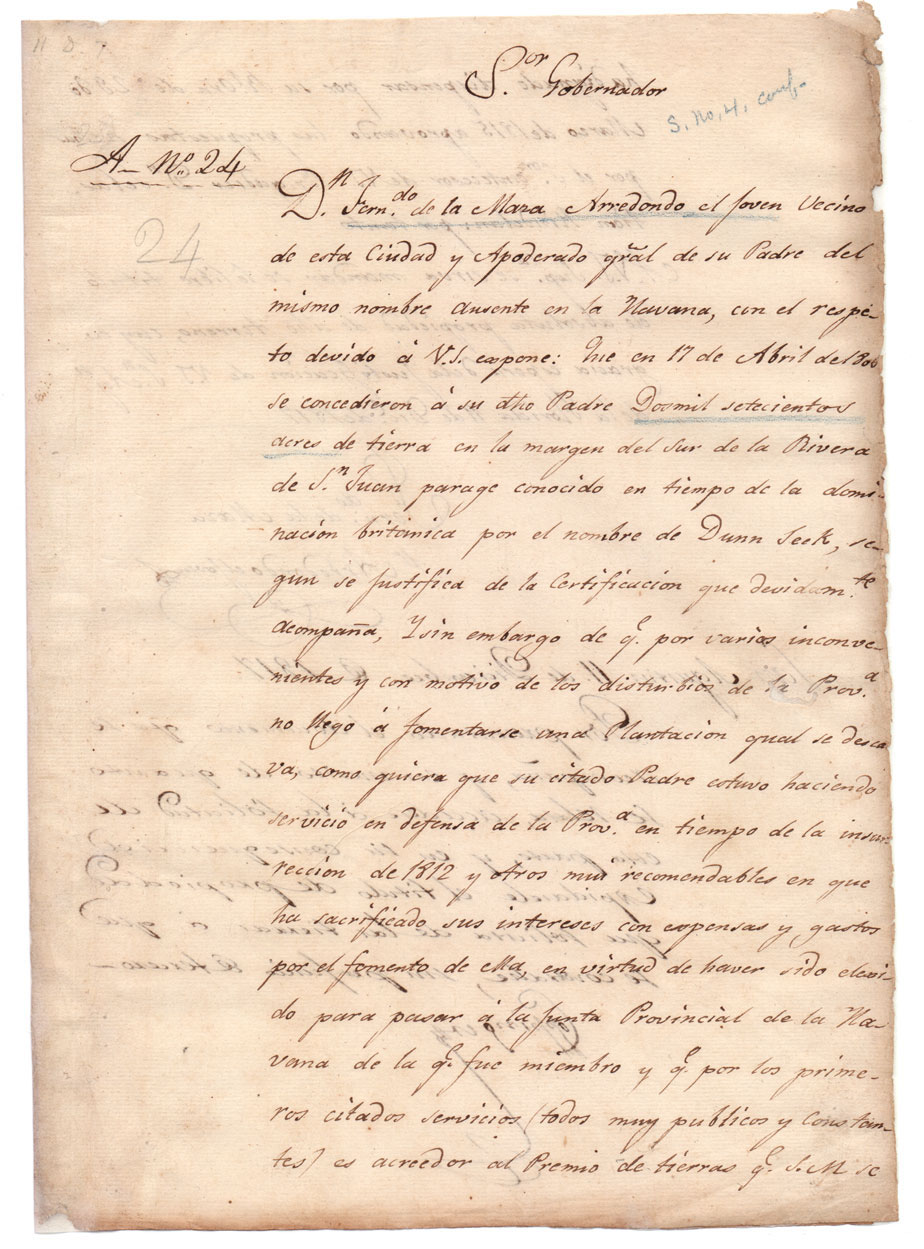 11 D. 7
S.or Gobernador
S. No, 4, conf.
A_ N.o 24
24
D.n Fern.do de la Maza Arredondo el Joven Vecino
de esta Ciudad y Apoderado gral de su Padre del
mismo nombre ausente en la Havana, con el respe-
to devido á V.S. expone: Que en 17 de Abril de 180
se concedieron á su dho Padre Dosmil setecientos
acres de tierra en la margen del Sur de la Rivera
de S.n Juan parage conocido en tiempo de la domi-
nación britanica por el nombre de Dunn Seek, se-
gun se justifica de la Certificación que devidam.te
acompaña, Y sin embargo de q.e por varios inconve-
nientes y con motivo de los disturbios de la Prov.a
no llegó á fomentarse una Plantacion qual se desea
va, como quiera que su citado Padre estuvo haciendo
servicio en defensa de la Prov.a en tiempo de la insur
rección de 1812 y otros mui recomendables en que
ha sacrificado sus intereses con expensas y gastos
por el fomento de ella, en virtud de haver sido elexi-
do para pasar á la Junta Provincial de la Ha-
vana de la q.e fue miembro y q.e por los prime-
ros citados servicios (todos muy publicos y constan-
tes) es acreedor al Premio de tierras q.e S.M se